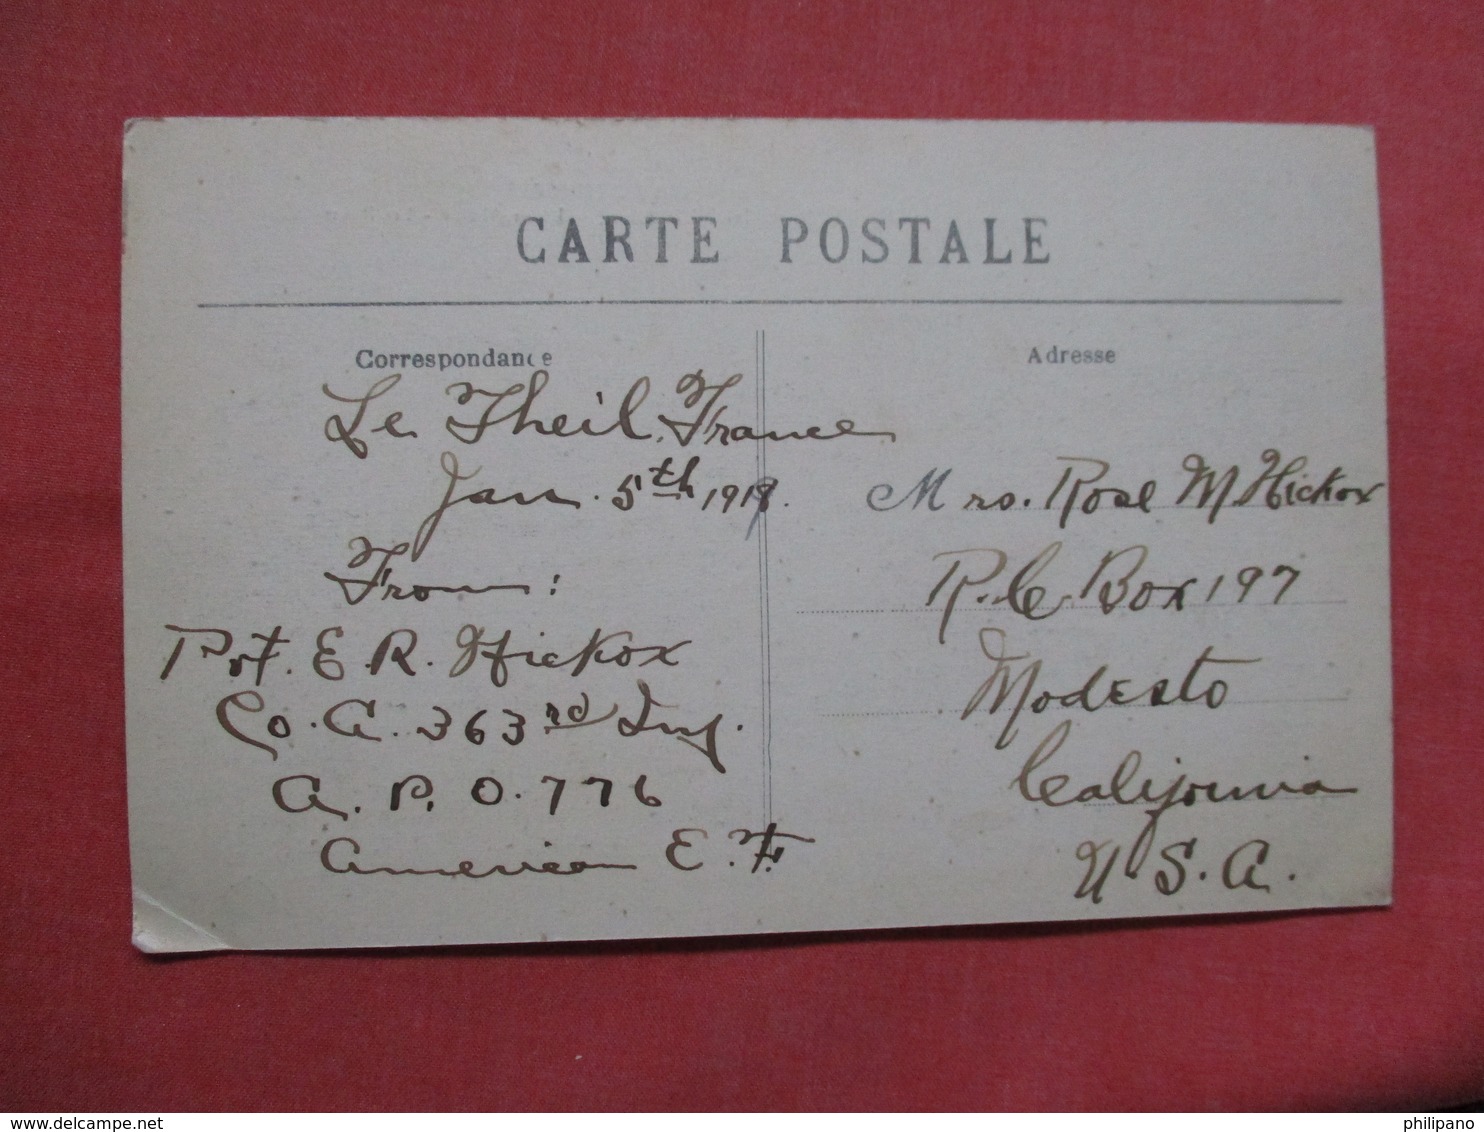 CARTE POSTALE
Correspondance
Adresse
Le Theil, France
Jan. 5th 1919.
From:
Pvt. E. R. Hickox
Co. A. 363rd Inf.
A. P. O. 776
American E. F.
Mrs. Rose M. Hickox
R. C. Box 197
Modesto
California
U. S. A.
www.delcampe.net
philipano